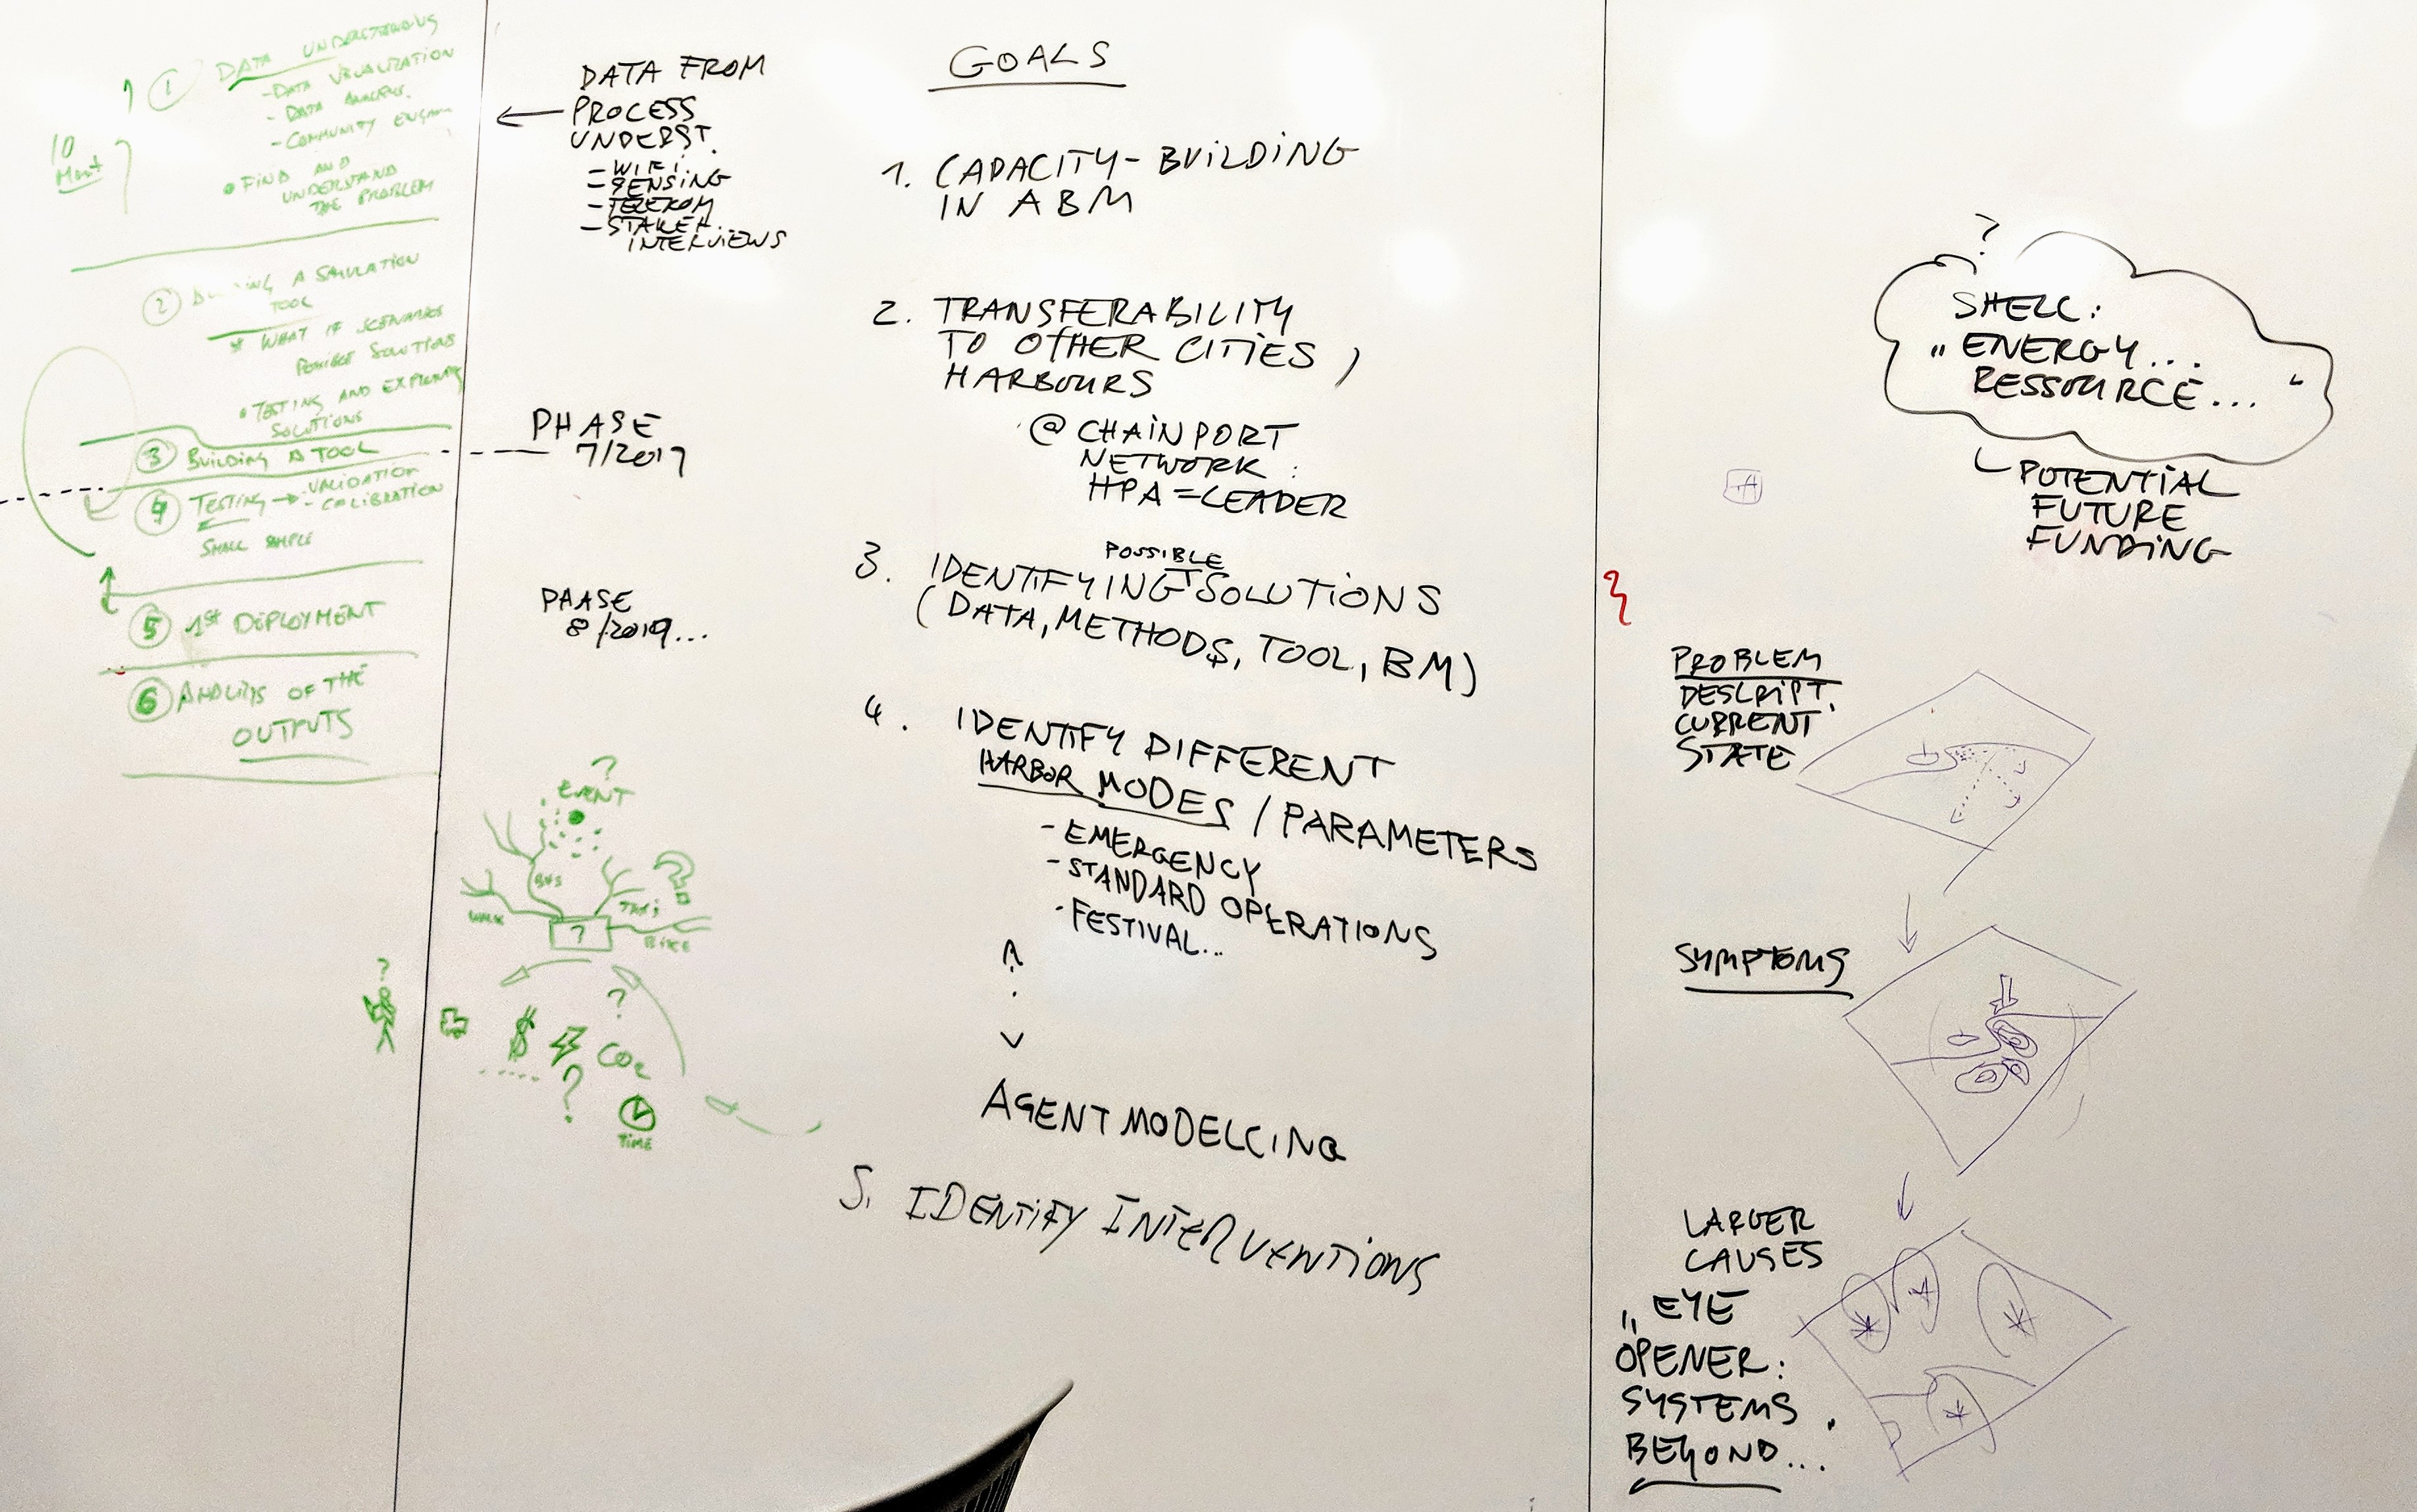 ① DATA UNDERSTANDING
- DATA VISUALIZATION
- DATA ANALYSIS.
- COMMUNITY ENGAM
10
• FIND AND
UNDERSTAND
THE PROBLEM
② A SIMULATION
TOOL
* WHAT IF SCENARIOS
POSSIBLE SOLUTIONS
• TESTING AND EXPLORING
SOLUTIONS
③ BUILDING A TOOL
④ TESTING → - VALIDATION
- CALIBRATION
SMALL SAMPLE
⑤ 1ST DEPLOYMENT
⑥ ANALISIS OF THE
OUTPUTS
DATA FROM
PROCESS
UNDERST.
- WIFI
- SENSING
- TELEKOM
- STAKEH.
INTERVIEWS
PHASE
7/2017
PHASE
8/2019...
?
EVENT
BUS
?
WALK
TAXI
?
BIKE
?
?
$
CO2
?
TIME
GOALS
1. CAPACITY-BUILDING
IN ABM
2. TRANSFERABILITY
TO OTHER CITIES,
HARBOURS
@ CHAINPORT
NETWORK:
HPA = LEADER
POSSIBLE
3. IDENTIFYING SOLUTIONS
(DATA, METHODS, TOOL, BM)
4. IDENTIFY DIFFERENT
HARBOR MODES / PARAMETERS
- EMERGENCY
- STANDARD OPERATIONS
- FESTIVAL...
AGENT MODELLING
5. IDENTIFY INTERVENTIONS
?
SHELL:
„ENERGY...
RESSOURCE..."
POTENTIAL
FUTURE
FUNDING
PROBLEM
DESCRIPT.
CURRENT
STATE
SYMPTOMS
LARGER
CAUSES
„EYE
OPENER:
SYSTEMS
BEYOND...